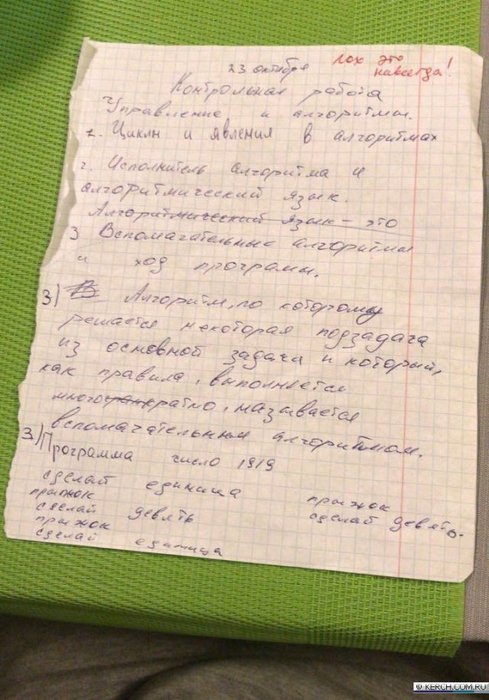 23 октября
лох это
навсегда!
Контрольная работа
Управление и алгоритмы.
1. Циклы и явления в алгоритмах
2. Исполнитель алгоритма и
алгоритмический язык.
Алгоритмический язык - это
3 Вспомачательные алгоритмы
и ход программ.
3) Алгоритм, по которому
решается некоторая подзадача
из основной задача и который,
как правила, выполняется
многократно, называется
вспомачательным алгоритмом.
3.) Программа число 1919
сделай единица
прыжок
сделай девять
прыжок
сделай единица
прыжок
сделай девять.
© KERCH.COM.RU